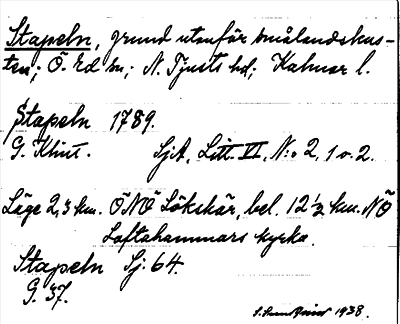 Stapeln, grund utanför smålandskus-
ten; Ö. Ed sn; N. Tjusts hd; Kalmar l.
Stapeln 1789.
G. Klint. SjA, Litt. VI, N:o 2, 1 o. 2.
Läge 2,3 km. ÖNÖ Lökskär, bel. 12 ½ km. NÖ
Loftahammars kyrka.
Stapeln Sj: 64.
G. 37.
1938.